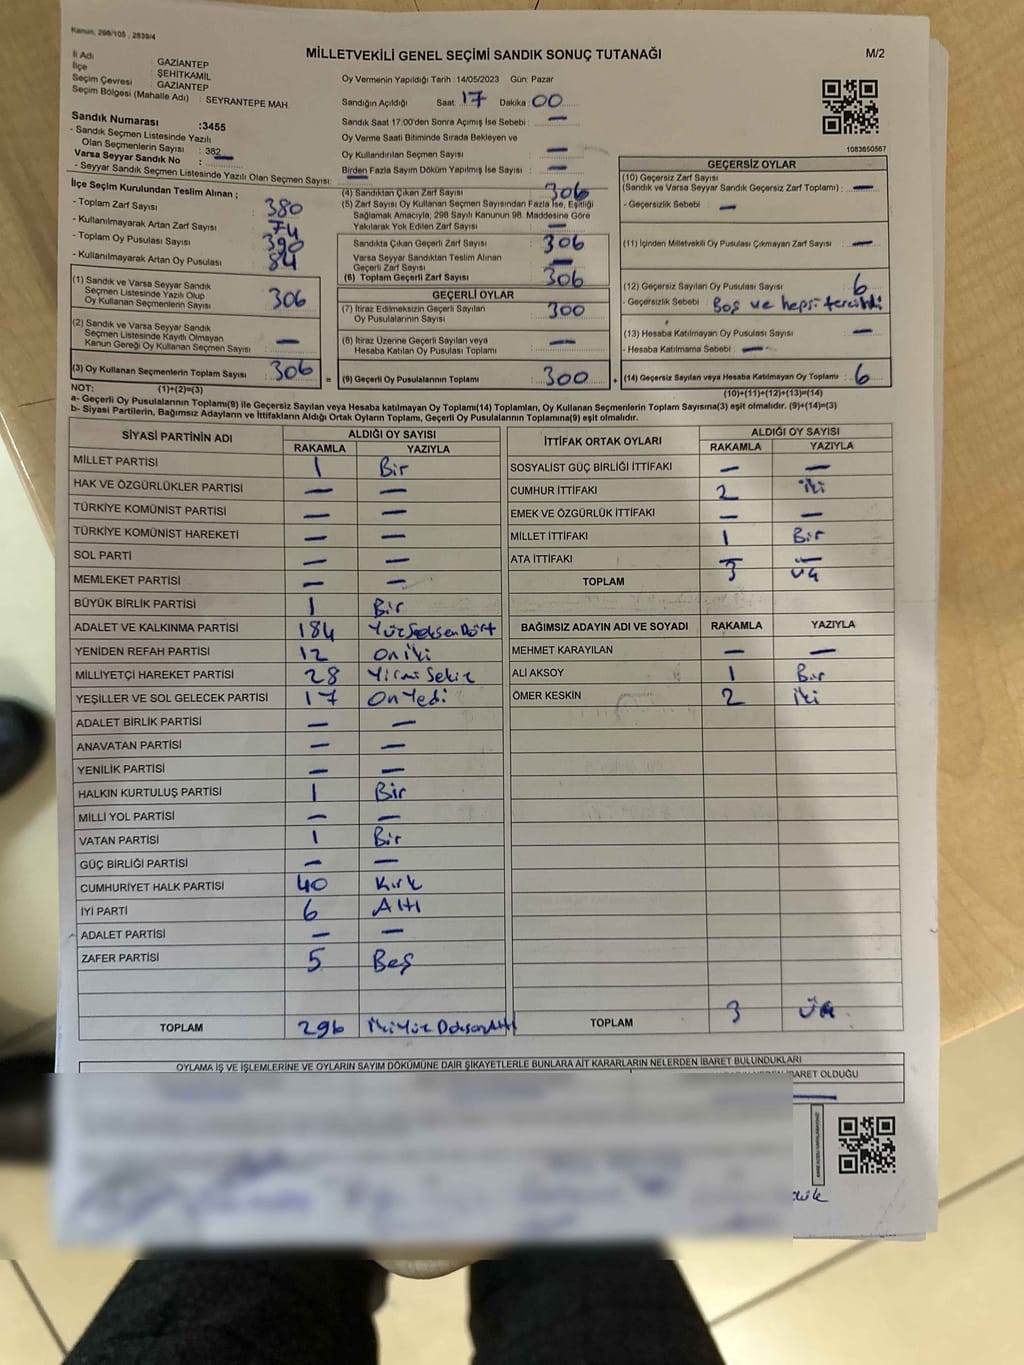 Kanun, 298/105 , 2839/4
MİLLETVEKİLİ GENEL SEÇİMİ SANDIK SONUÇ TUTANAĞI
M/2
İl Adı GAZİANTEP
İlçe ŞEHİTKAMİL
Seçim Çevresi GAZİANTEP
Seçim Bölgesi (Mahalle Adı) : SEYRANTEPE MAH.
Sandık Numarası :3455
- Sandık Seçmen Listesinde Yazılı
Olan Seçmenlerin Sayısı : 382
Varsa Seyyar Sandık No : —
- Seyyar Sandık Seçmen Listesinde Yazılı Olan Seçmen Sayısı: —
Oy Vermenin Yapıldığı Tarih : 14/05/2023 Gün: Pazar
Sandığın Açıldığı Saat: 17 Dakika : 00
Sandık Saat 17:00'den Sonra Açımış İse Sebebi : —
Oy Verme Saati Bitiminde Sırada Bekleyen ve
Oy Kullandırılan Seçmen Sayısı —
Birden Fazla Sayım Döküm Yapılmış İse Sayısı : —
1083650567
İlçe Seçim Kurulundan Teslim Alınan ;
- Toplam Zarf Sayısı : 380
- Kullanılmayarak Artan Zarf Sayısı : 74
- Toplam Oy Pusulası Sayısı : 390
- Kullanılmayarak Artan Oy Pusulası : 84
(1) Sandık ve Varsa Seyyar Sandık
Seçmen Listesinde Yazılı Olup
Oy Kullanan Seçmenlerin Sayısı : 306
(2) Sandık ve Varsa Seyyar Sandık
Seçmen Listesinde Kayıtlı Olmayan
Kanun Gereği Oy Kullanan Seçmen Sayısı : —
(3) Oy Kullanan Seçmenlerin Toplam Sayısı : 306
(4) Sandıktan Çıkan Zarf Sayısı : 306
(5) Zarf Sayısı Oy Kullanan Seçmen Sayısından Fazla İse, Eşitliği
Sağlamak Amacıyla, 298 Sayılı Kanunun 98. Maddesine Göre
Yakılarak Yok Edilen Zarf Sayısı : —
Sandıkta Çıkan Geçerli Zarf Sayısı : 306
Varsa Seyyar Sandıktan Teslim Alınan
Geçerli Zarf Sayısı : —
(6) Toplam Geçerli Zarf Sayısı : 306
GEÇERLİ OYLAR
(7) İtiraz Edilmeksizin Geçerli Sayılan
Oy Pusulalarının Sayısı : 300
(8) İtiraz Üzerine Geçerli Sayılan veya
Hesaba Katılan Oy Pusulası Toplamı : —
= (9) Geçerli Oy Pusulalarının Toplamı : 300
GEÇERSİZ OYLAR
(10) Geçersiz Zarf Sayısı
(Sandık ve Varsa Seyyar Sandık Geçersiz Zarf Toplamı) : —
- Geçersizlik Sebebi : —
(11) İçinden Milletvekili Oy Pusulası Çıkmayan Zarf Sayısı : —
(12) Geçersiz Sayılan Oy Pusulası Sayısı : 6
- Geçersizlik Sebebi : Boş ve hepsi
(13) Hesaba Katılmayan Oy Pusulası Sayısı : —
- Hesaba Katılmama Sebebi : —
+ (14) Geçersiz Sayılan veya Hesaba Katılmayan Oy Toplamı : 6
NOT: (1)+(2)=(3)
(10)+(11)+(12)+(13)=(14)
a- Geçerli Oy Pusulalarının Toplamı(9) ile Geçersiz Sayılan veya Hesaba katılmayan Oy Toplamı(14) Toplamları, Oy Kullanan Seçmenlerin Toplam Sayısına(3) eşit olmalıdır. (9)+(14)=(3)
b- Siyasi Partilerin, Bağımsız Adayların ve İttifakların Aldığı Ortak Oyların Toplamı, Geçerli Oy Pusulalarının Toplamına(9) eşit olmalıdır.
SİYASİ PARTİNİN ADI ALDIĞI OY SAYISI
RAKAMLA YAZIYLA
MİLLET PARTİSİ 1 Bir
HAK VE ÖZGÜRLÜKLER PARTİSİ — —
TÜRKİYE KOMÜNİST PARTİSİ — —
TÜRKİYE KOMÜNİST HAREKETİ — —
SOL PARTİ — —
MEMLEKET PARTİSİ — —
BÜYÜK BİRLİK PARTİSİ 1 Bir
ADALET VE KALKINMA PARTİSİ 184 YüzSeksenDört
YENİDEN REFAH PARTİSİ 12 Oniki
MİLLİYETÇİ HAREKET PARTİSİ 28 Yirmi Sekiz
YEŞİLLER VE SOL GELECEK PARTİSİ 17 OnYedi
ADALET BİRLİK PARTİSİ — —
ANAVATAN PARTİSİ — —
YENİLİK PARTİSİ — —
HALKIN KURTULUŞ PARTİSİ 1 Bir
MİLLİ YOL PARTİSİ — —
VATAN PARTİSİ 1 Bir
GÜÇ BİRLİĞİ PARTİSİ — —
CUMHURİYET HALK PARTİSİ 40 Kırk
İYİ PARTİ 6 Altı
ADALET PARTİSİ — —
ZAFER PARTİSİ 5 Beş
TOPLAM 296 İkiYüz DoksanAltı
İTTİFAK ORTAK OYLARI ALDIĞI OY SAYISI
RAKAMLA YAZIYLA
SOSYALİST GÜÇ BİRLİĞİ İTTİFAKI — —
CUMHUR İTTİFAKI 2 İki
EMEK VE ÖZGÜRLÜK İTTİFAKI — —
MİLLET İTTİFAKI 1 Bir
ATA İTTİFAKI — —
TOPLAM 3 Üç
BAĞIMSIZ ADAYIN ADI VE SOYADI RAKAMLA YAZIYLA
MEHMET KARAYILAN — —
ALİ AKSOY 1 Bir
ÖMER KESKİN 2 İki
TOPLAM 3 Üç
OYLAMA İŞ VE İŞLEMLERİNE VE OYLARIN SAYIM DÖKÜMÜNE DAİR ŞİKAYETLERLE BUNLARA AİT KARARLARIN NELERDEN İBARET BULUNDUKLARI
İBARET OLDUĞU